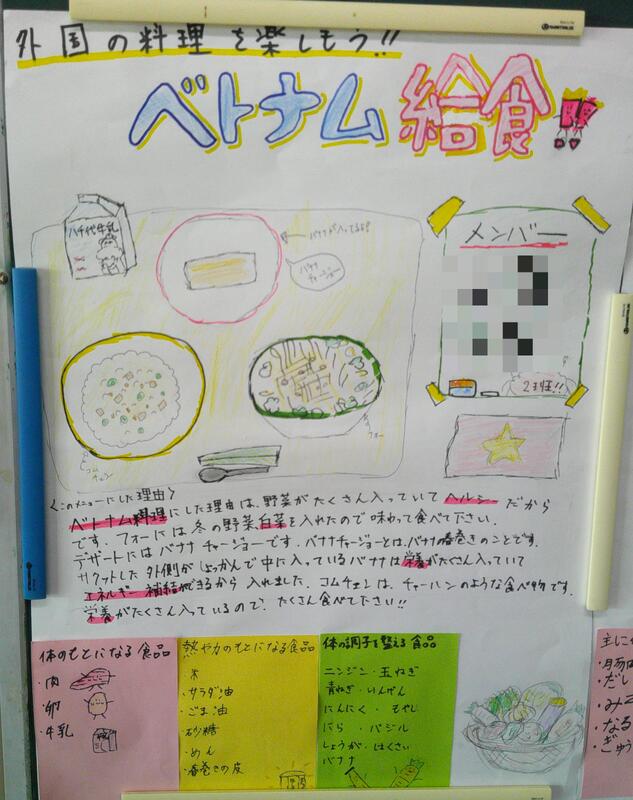 外国の料理を楽しもう!!
ベトナム給食!!
八千代牛乳
バナナが入ってるよ!
バナナチャージョー
コムチェン
フォー
メンバー
<このメニューにした理由>
ベトナム料理にした理由は、野菜がたくさん入っていてヘルシーだから
です。フォーには冬の野菜、白菜を入れたので味わって食べて下さい。
デザートにはバナナチャージョーです。バナナチャージョーとは、バナナの春巻きのことです。
サクッとした外側がよっかんで中に入っているバナナは栄養がたくさん入っていて
エネルギー補給ができるから入れました。コムチェンは、チャーハンのような食べ物です。
栄養がたくさん入っているので、たくさん食べて下さい!!
体のもとになる食品
・肉
・卵
・牛乳
熱や力のもとになる食品
・米
・サラダ油
・ごま油
・砂糖
・めん
・春巻きの皮
体の調子を整える食品
ニンジン・玉ねぎ
青ねぎ・いんげん
にんにく・もやし
にら・バジル
しょうが・はくさい
バナナ
主に
・だし